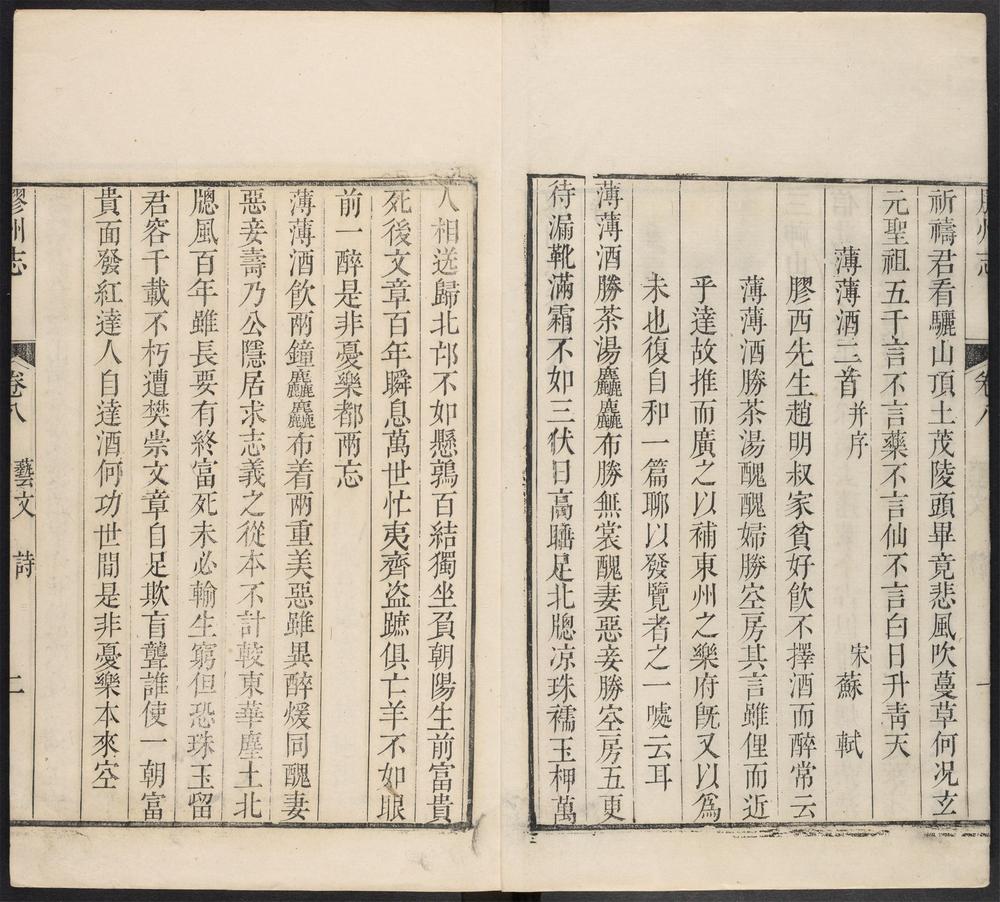 膠州志 卷八 一
祈禱君看驪山頂上茂陵頭畢竟悲風吹蔓草何况玄
元聖祖五千言不言藥不言仙不言白日升青天
薄薄酒二首并序 宋蘇軾
膠西先生趙明叔家貧好飲不擇酒而醉常云
薄薄酒勝茶湯醜醜婦勝空房其言雖俚而近
乎達故推而廣之以補東州之樂府旣又以爲
未也復自和一篇聊以發覽者之一噱云耳
薄薄酒勝茶湯麤麤布勝無裳醜妻惡妾勝空房五更
待漏靴滿霜不如三伏日高睡足北牕凉珠襦玉柙萬
人相送歸北邙不如懸鶉百結獨坐負朝陽生前富貴
死後文章百年瞬息萬世忙夷齊盜蹠俱亡羊不如眼
前一醉是非憂樂都兩忘
薄薄酒飲兩鐘麤麤布着兩重美惡雖異醉煖同醜妻
惡妾壽乃公隱居求志義之從本不計較東華塵土北
牕風百年雖長要有終富死未必輸生窮但恐珠玉留
君容千載不朽遭樊崇文章自足欺盲聾誰使一朝富
貴面發紅達人自達酒何功世間是非憂樂本來空
膠州志 卷八 藝文 詩 二